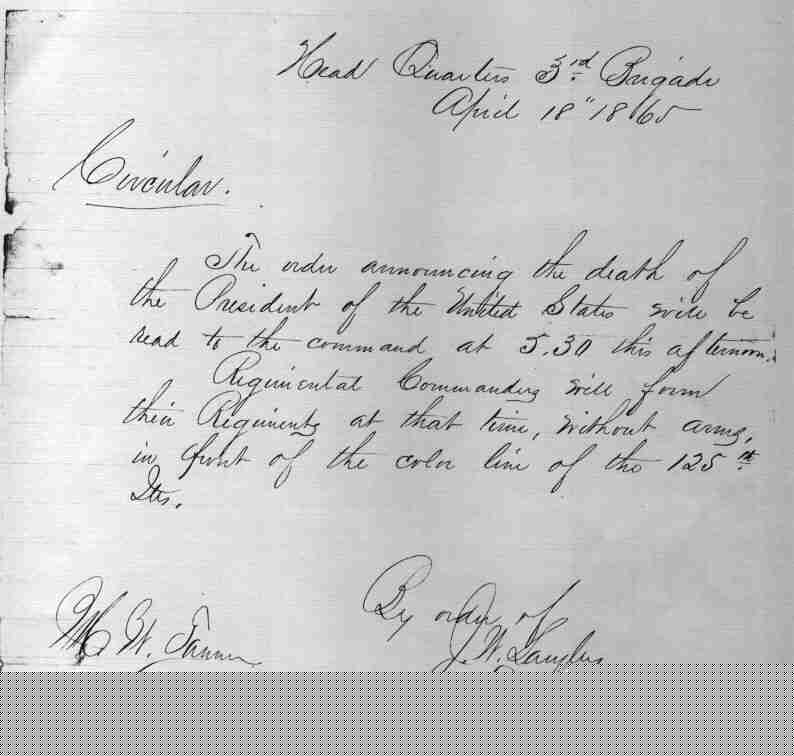 Head Quarters 3rd Brigade
April 18" 1865
Circular.
The order announcing the death of
the President of the United States will be
read to the command at 5.30 this afternoon.
Regimental Commanders will form
their Regiments at that time, without arms,
in front of the color line of the 125th
Ills.
By order of
J. W. Langley
M. W. Tanner